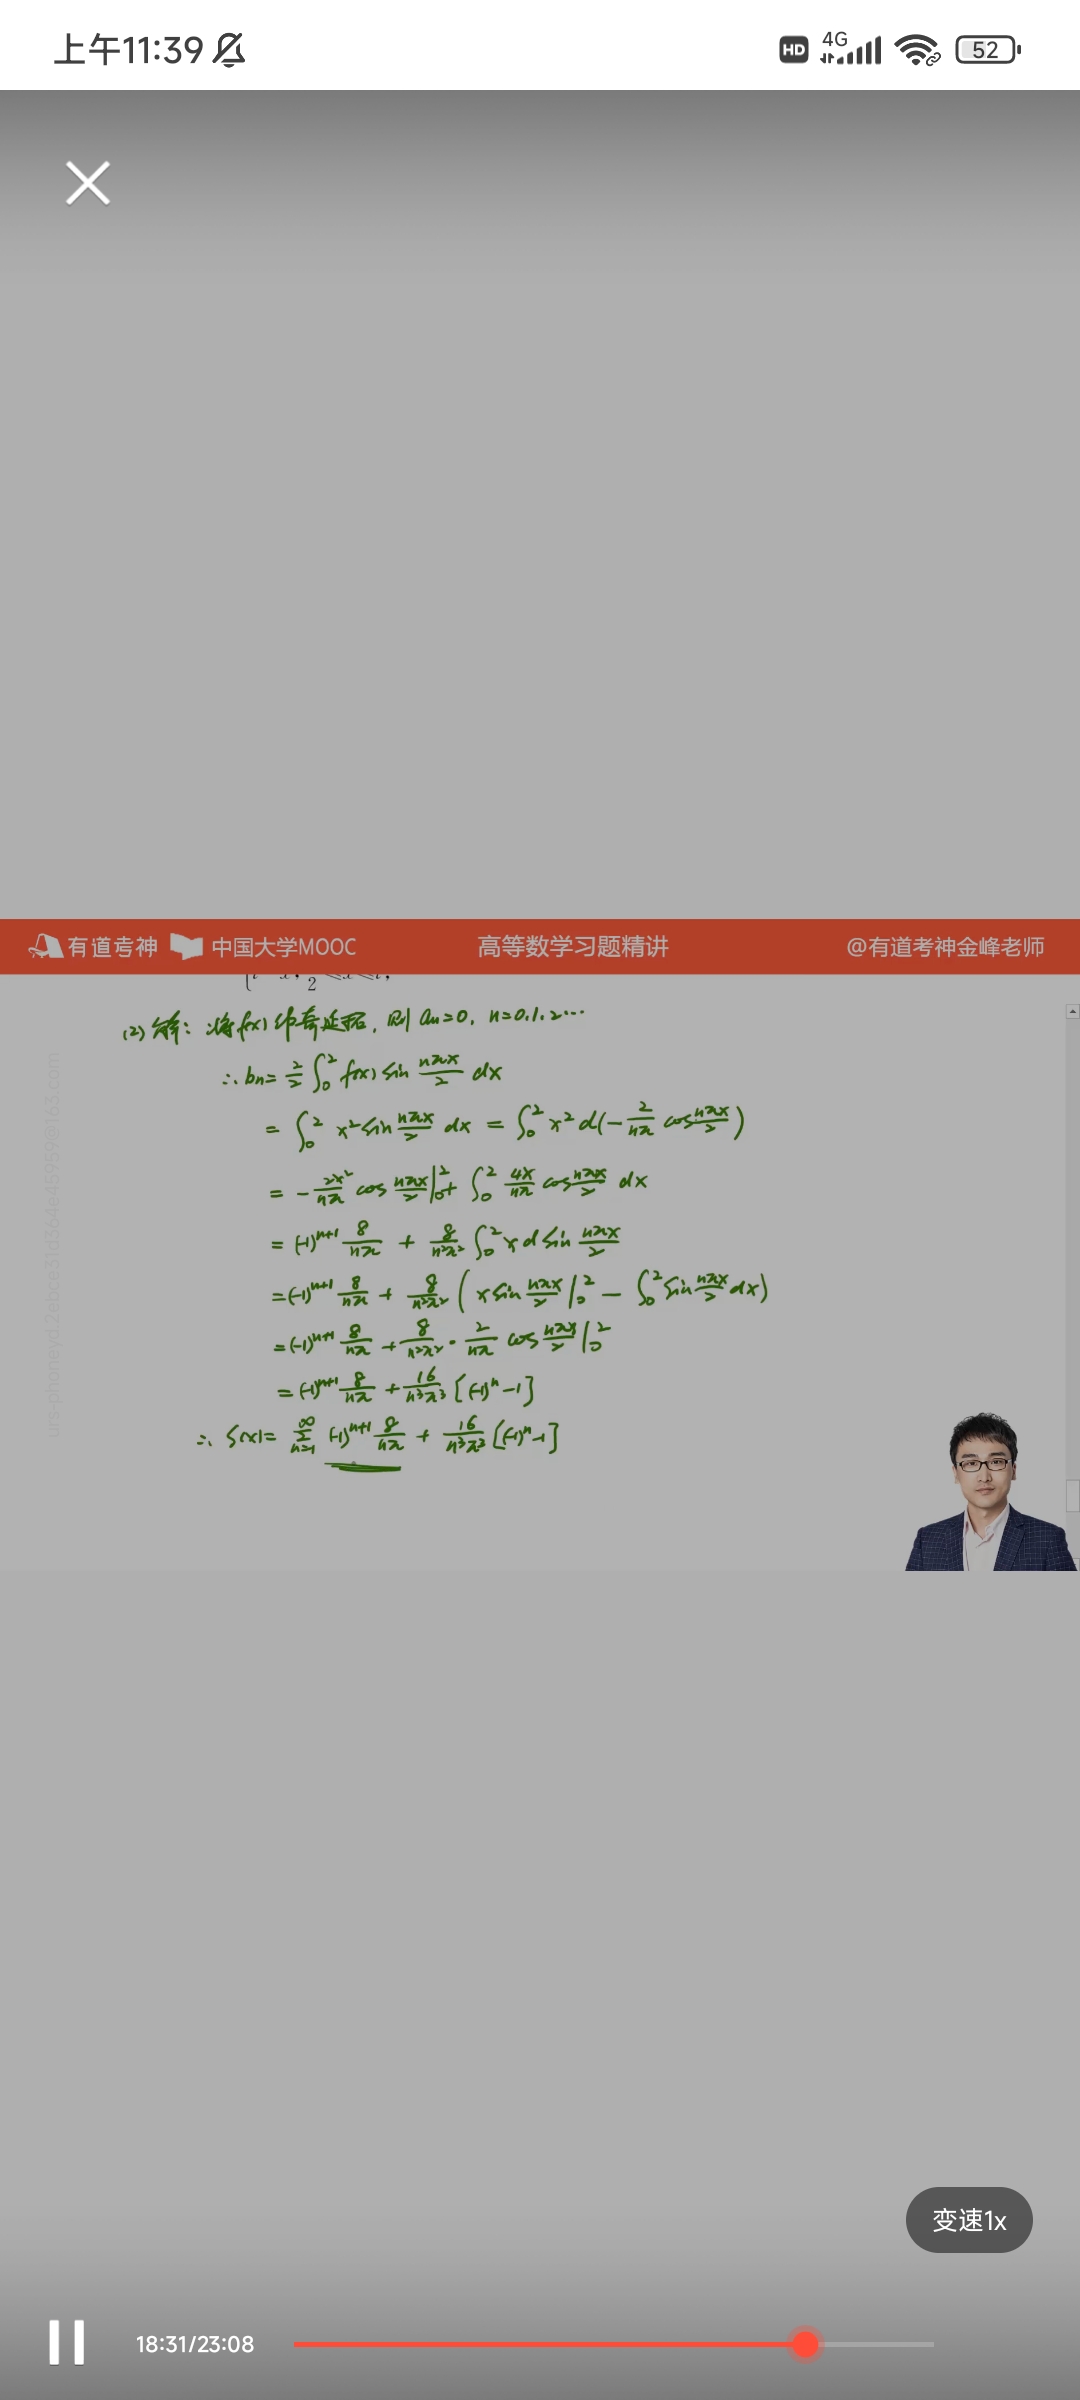 上午11:39 HD 4G 52
有道考神 中国大学MOOC 高等数学习题精讲 @有道考神金峰老师
(2) 解：将f(x)作奇延拓，则 an=0, n=0.1.2…
∴ bn= 2/2 ∫₀² f(x) sin nπx/2 dx
= ∫₀² x² sin nπx/2 dx = ∫₀² x² d(- 2/nπ cos nπx/2)
= - 2x²/nπ cos nπx/2 |₀² + ∫₀² 4x/nπ cos nπx/2 dx
= (-1)ⁿ⁺¹ 8/nπ + 8/n²π² ∫₀² x d sin nπx/2
= (-1)ⁿ⁺¹ 8/nπ + 8/n²π² ( x sin nπx/2 |₀² - ∫₀² sin nπx/2 dx)
= (-1)ⁿ⁺¹ 8/nπ + 8/n²π² · 2/nπ cos nπx/2 |₀²
= (-1)ⁿ⁺¹ 8/nπ + 16/n³π³ [(-1)ⁿ-1]
∴ S(x)= ∞Σn=1 (-1)ⁿ⁺¹ 8/nπ + 16/n³π³ [(-1)ⁿ-1]
变速1x
18:31/23:08